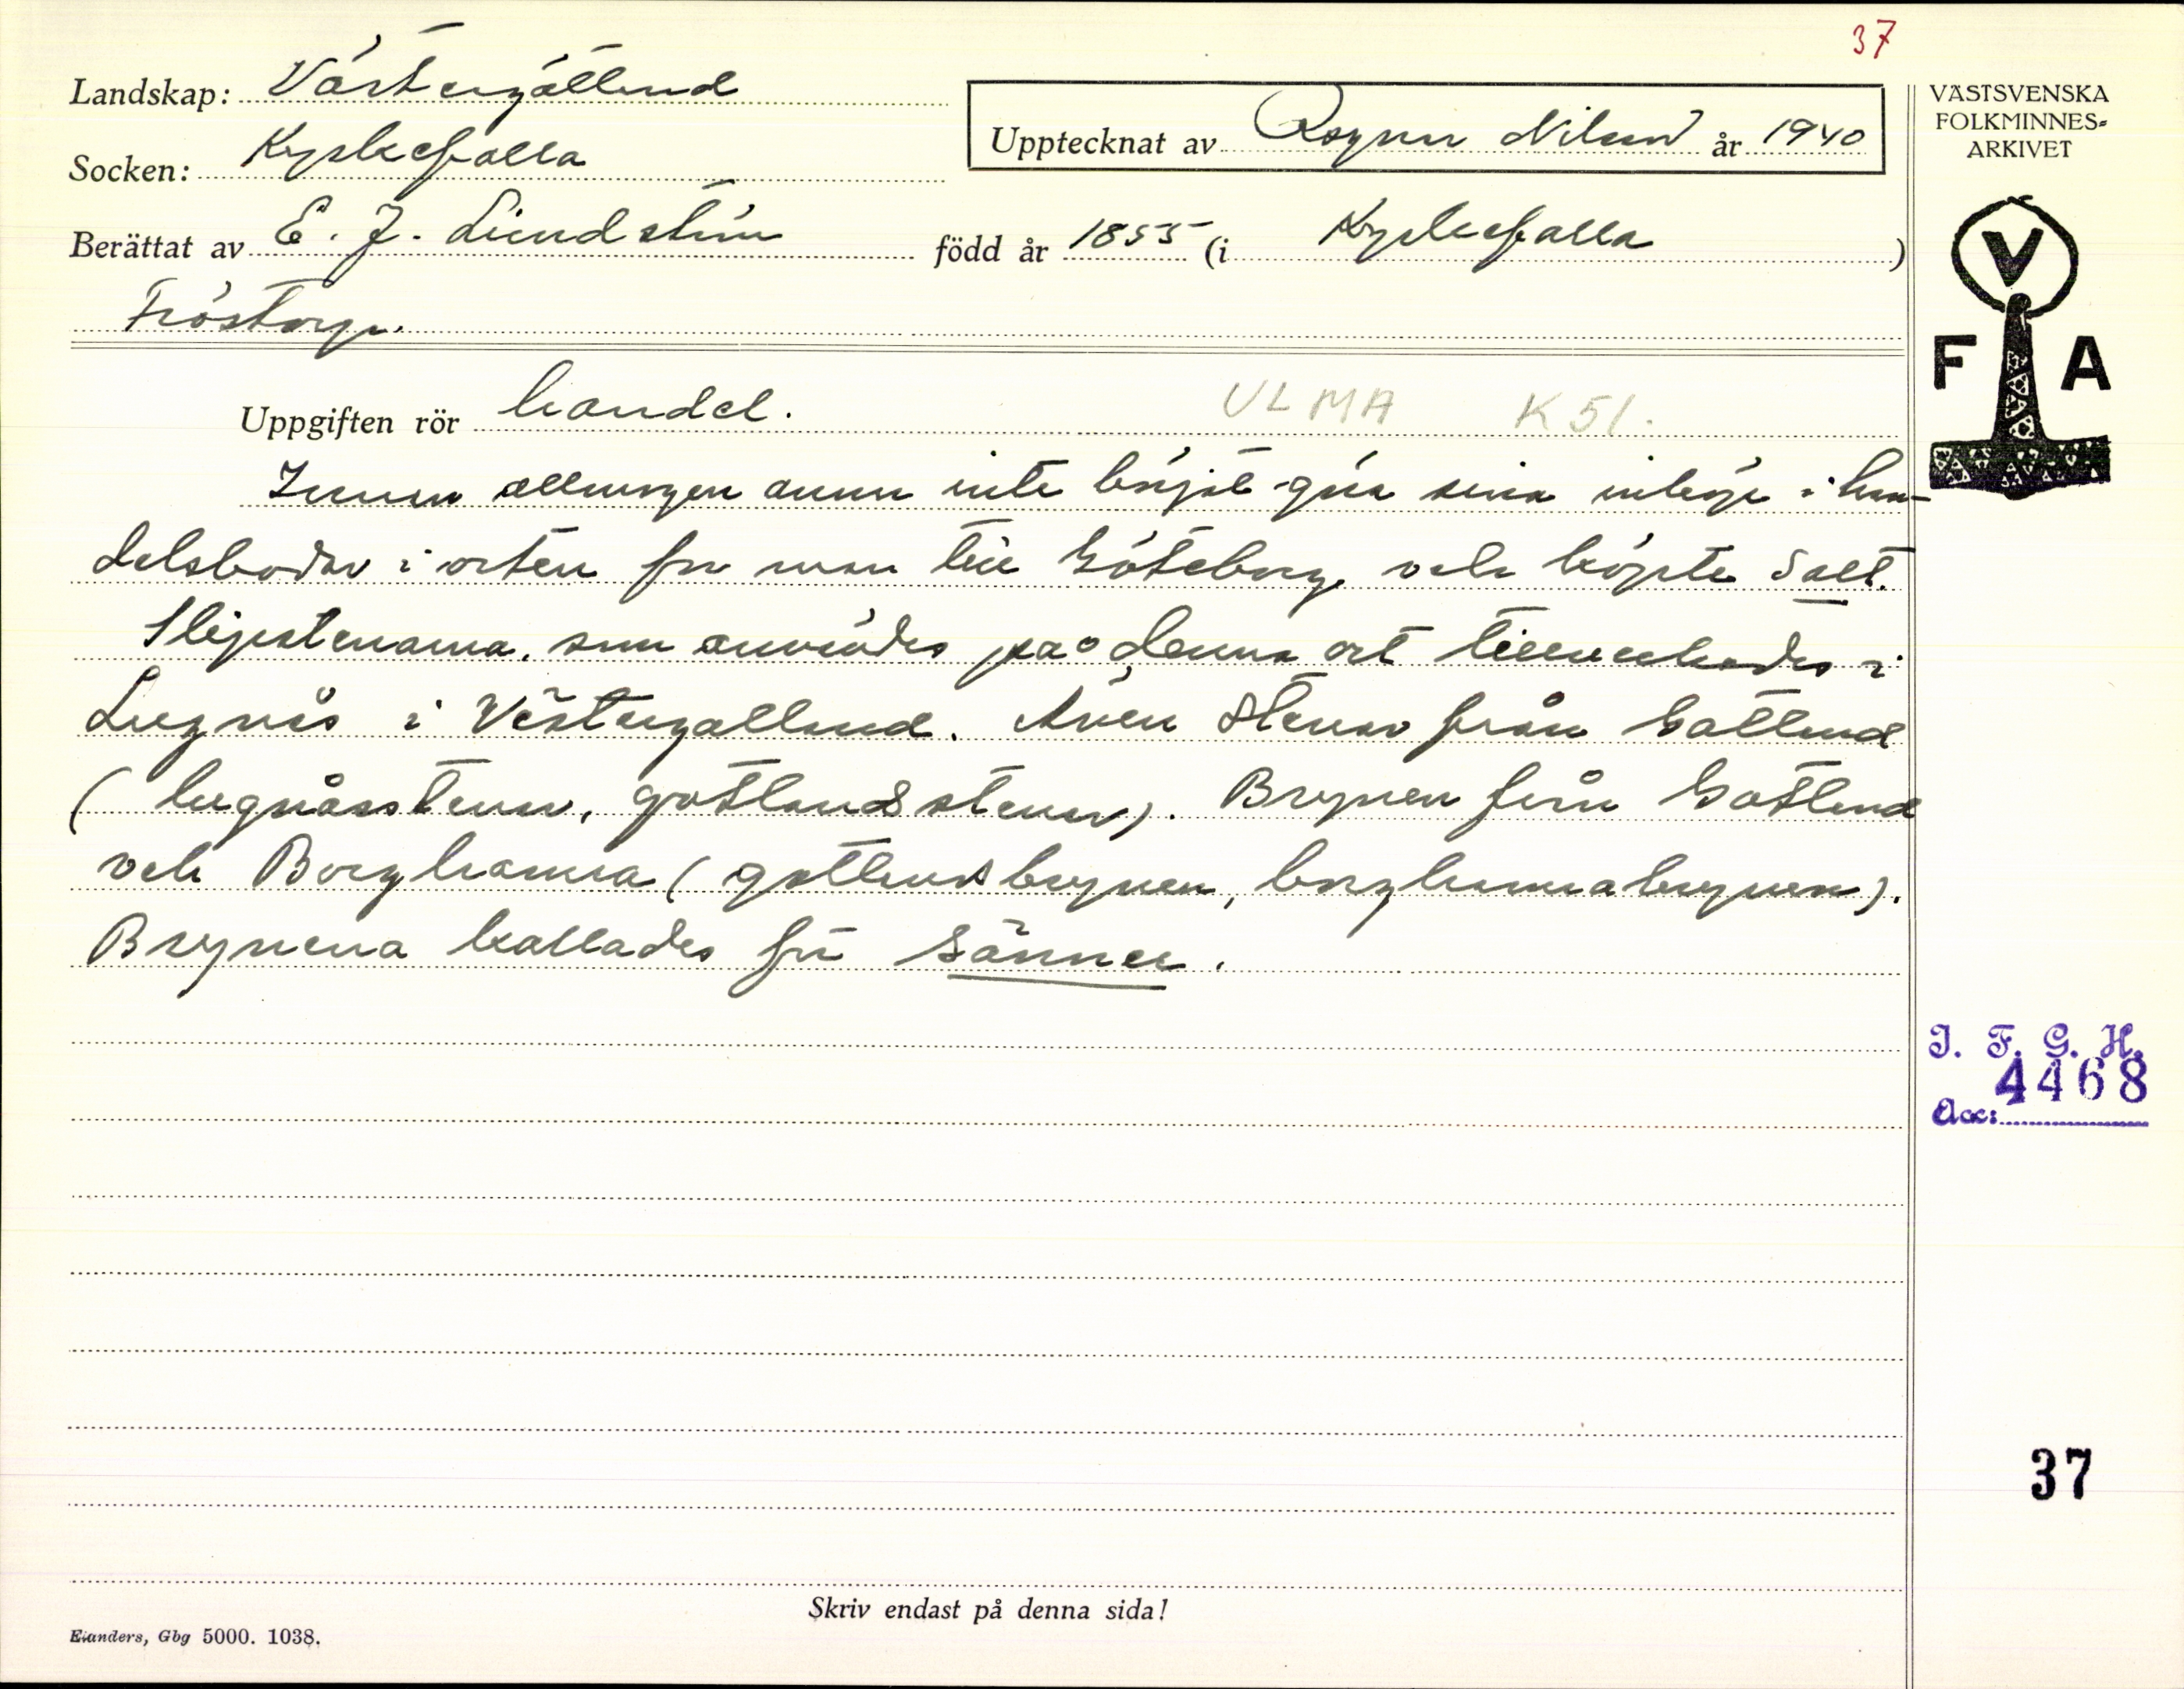 37
Landskap: Västergötland
Socken: Kyrkefalla
Upptecknat av Ragnar Nilsson år 1940
Berättat av E. J. Lindström född år 1855 (i Kyrkefalla)
Fröstorp.
VÄSTSVENSKA
FOLKMINNES-
ARKIVET
V
F A
Uppgiften rör handel. ULMA K 51.
Innan allmogen ännu inte börjat göra sina inköp i han-
delsbodar i orten for man till Göteborg och köpte salt.
Slipstenarna, som användes på denna ort tillverkades i
Lugnås i Västergötland. Även stenar från Gotland
(lugnåsstenar, gotlandsstenar). Brynen från Gotland
och Borghamn (gotlandsbrynen, borghamnabrynen).
Brynena kallades för sänner.
I. F. G. H.
4468
Acc:
37
Skriv endast på denna sida!
Elanders, Gbg 5000. 1038.